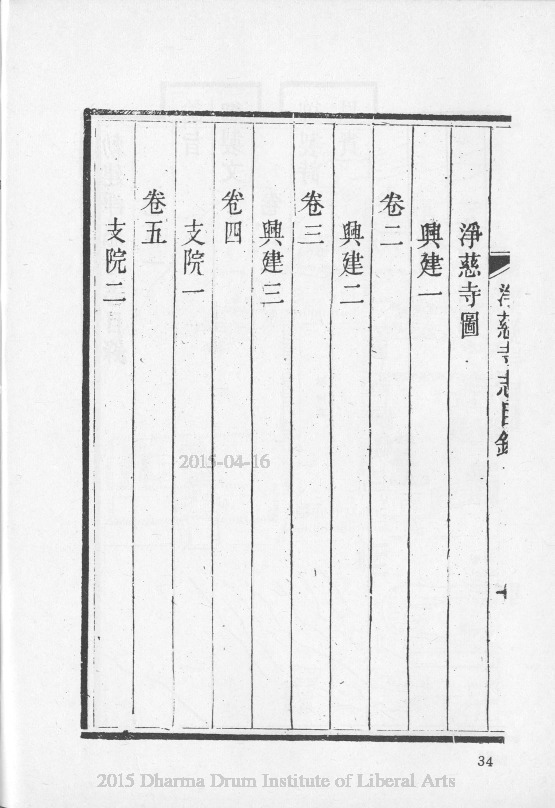 淨慈寺志目錄
淨慈寺圖
興建一
卷二
興建二
卷三
興建三
卷四
支院一
卷五
支院二
2015-04-16
34
2015 Dharma Drum Institute of Liberal Arts